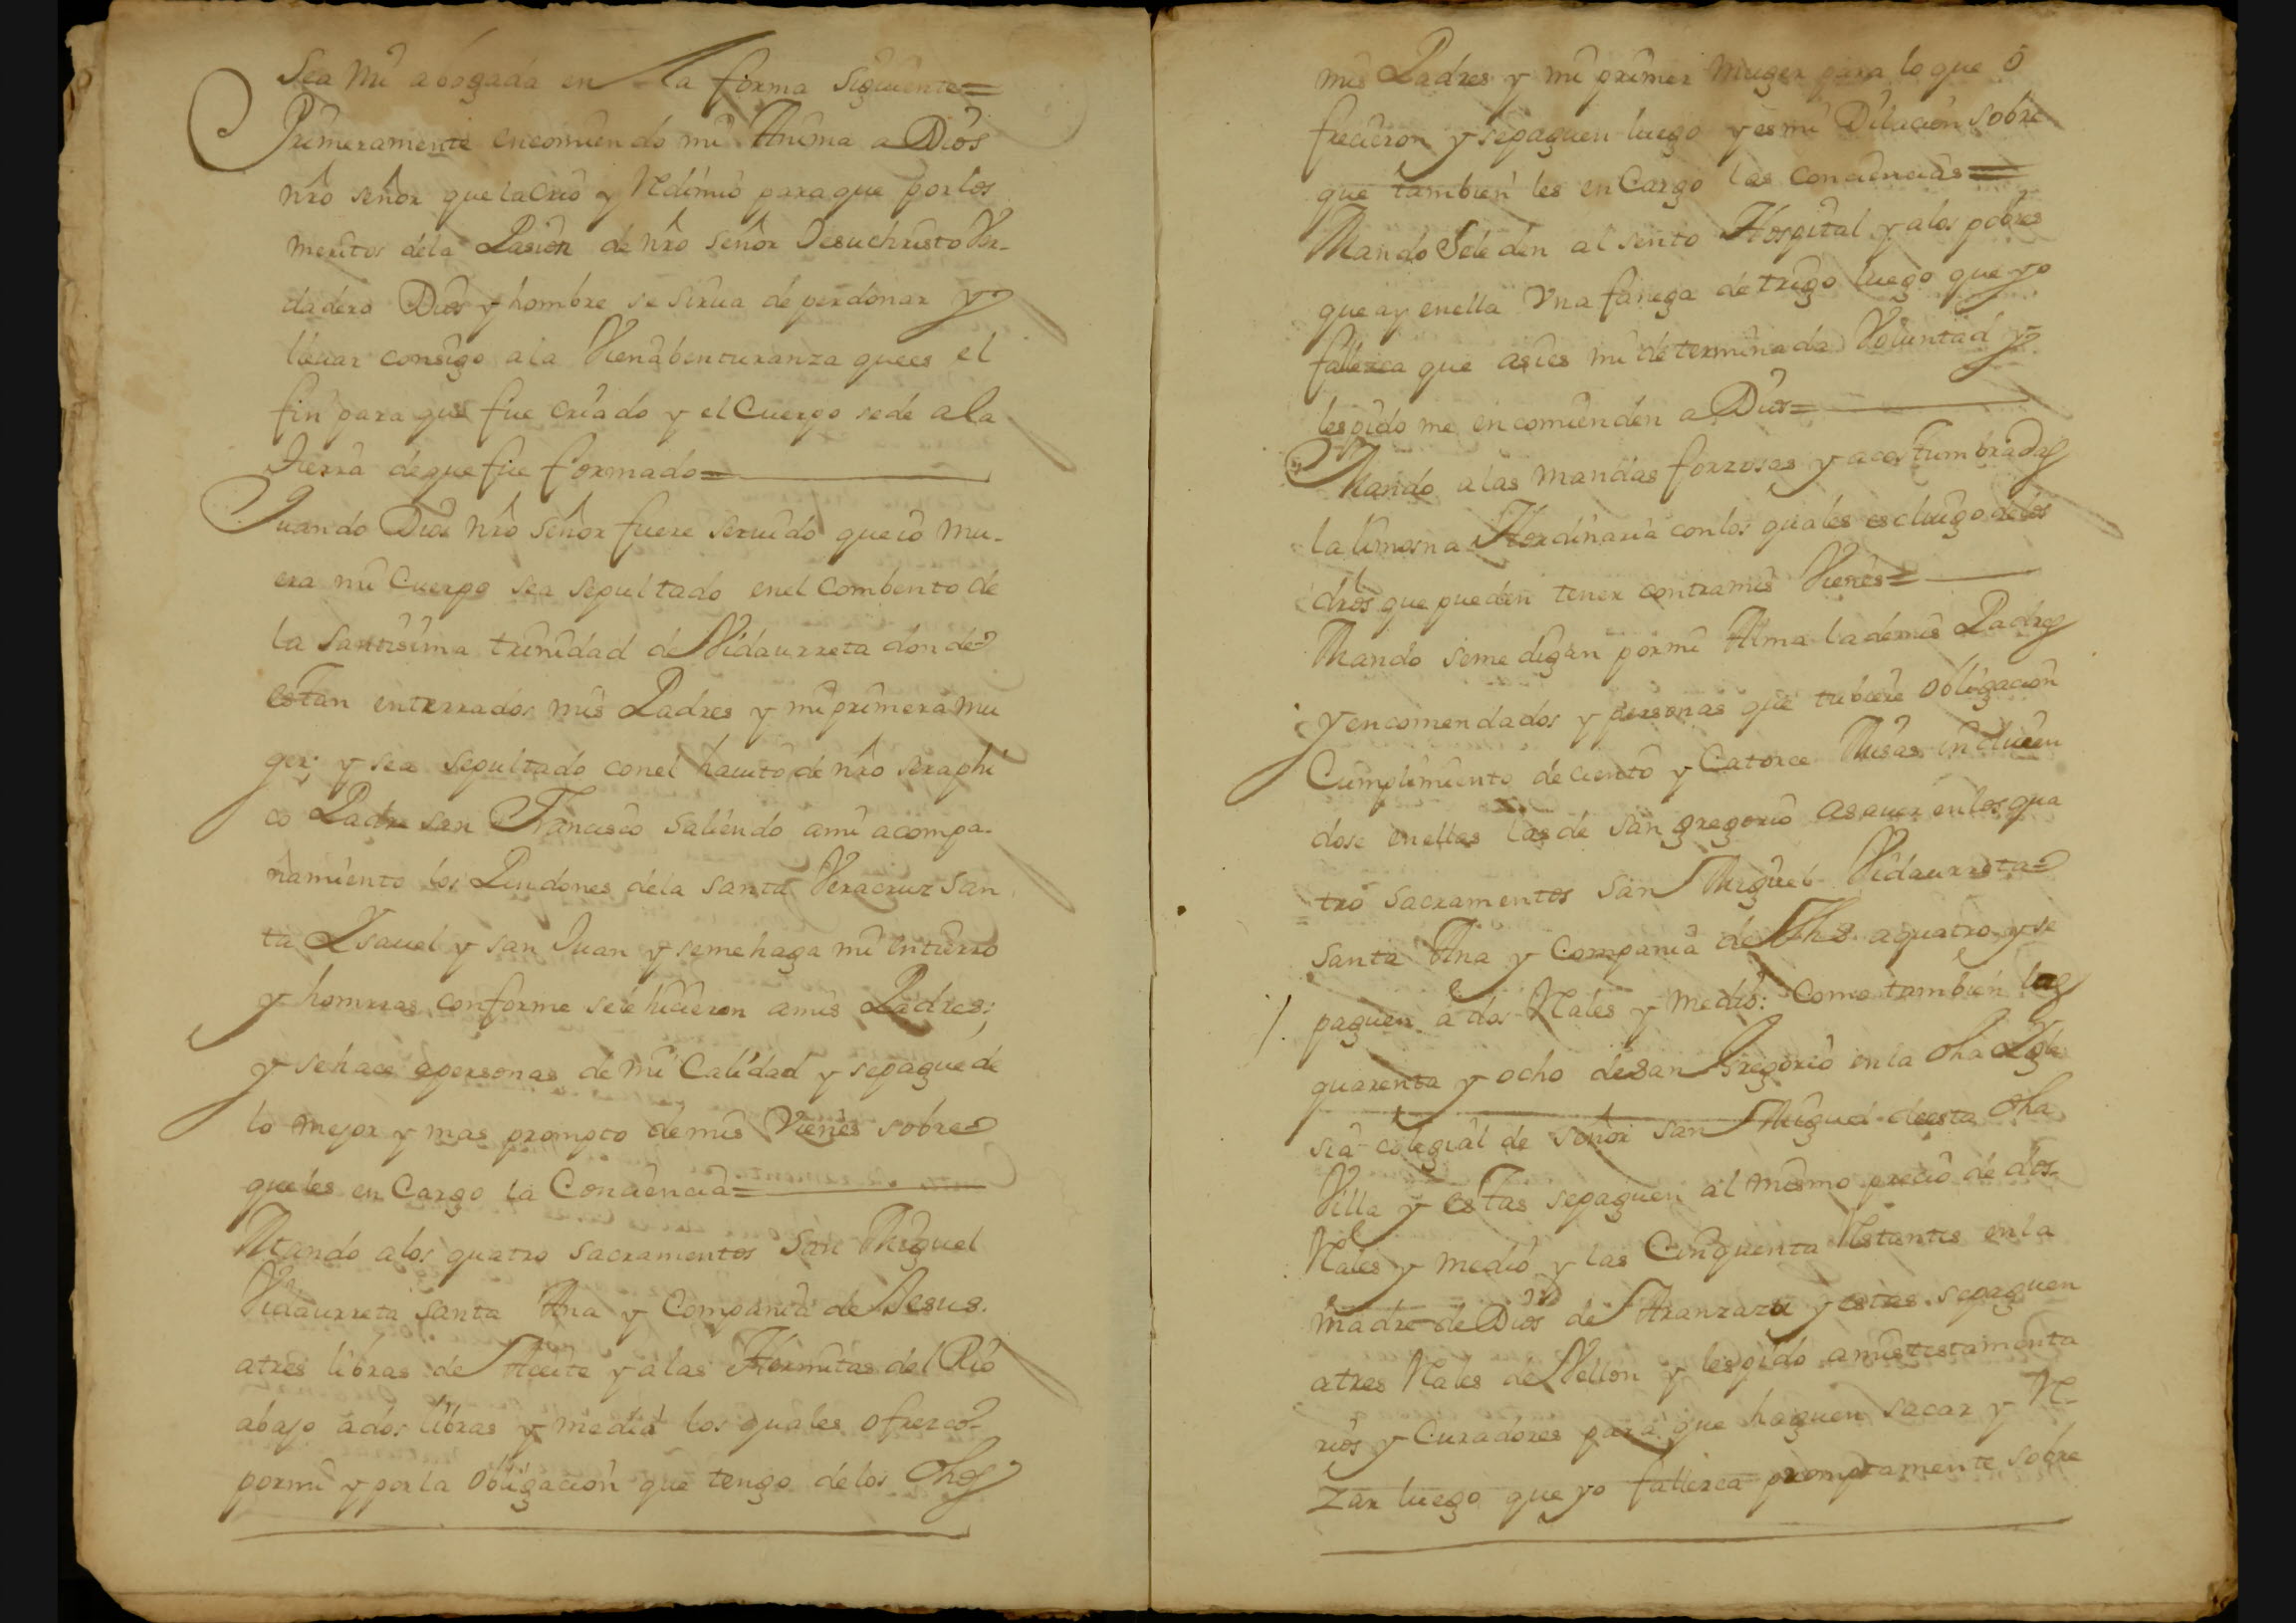 Sea mi abogada en la forma siguiente=
Primeramente encomiendo mi Anima a Dios
nrô señor que la Crio y Redimio para que por los
meritos de la Pasion de nrô señor Jesuchristo Ver-
dadero Dios y hombre se sirua de perdonar y
lleuar consigo a la Vienabenturanza que es el
fin para que fue Criado y el Cuerpo se dè a la
Tierra de que fue formado=
Quando Dios nrô señor fuere seruido que io mu-
era mi Cuerpo sea sepultado en el Combento de
la Santisima trinidad de Vidaurreta donde
estan enterrados mis Padres y mi primera mu
ger; y sea sepultado con el hauito de nrô seraphi
co Padre san Francisco saliendo a mi acompa-
ñamiento los Pindones de la Santa Veracruz San
ta Ysauel y san Juan y se me haga mi intierro
y homrras conforme se le hicieron a mis Padres;
y se hace a personas de mi Calidad y se pague de
lo mejor y mas prompto de mis Vienes sobre
que les en Cargo la Conciencia=
Mando a los quatro Sacramentos San Miguel
Vidaurreta Santa Ana y Compania de Jesus.
a tres libras de Aceite y a las Hermitas del Rio
abajo a dos libras y media los quales ofrezco
por mi y por la obligacion que tengo de los dhos
mis Padres y mi primer Muger para lo que o
frecieron y se paguen luego y es mi Dilacion sobre
que tambien les en Cargo las conciencias=
Mando Se le den al sento Hospital y a los pobres
que ay en ella Vna fanega de trigo luego que yo
fallezca que asi es mi determinada Voluntad y
les pido me encomienden a Dios=
Mando a las mandas forzosas y acostumbradas
la limosna Hordinaria con los quales escluigo de los
drôs que pueden tener contra mis Vienes=
Mando se me digan por mi Alma la de mis Padres
y encomendados y personas que tubiere obligacion
Cumplimiento de ciento y Catorce Misas incluien
dose en ellas las de san gregorio asauer en los qua
tro Sacramentos San Miguel Vidaurreta
Santa Ana y Compania de Jhs a quatro y se
paguen a dos Rales y medio: Como tambien las
quarenta y ocho de San Gregorio en la dha Ygle
sia colegial de señor san Miguel de esta dha
Villa y estas se paguen al mismo precio de dos
Rales y medio y las Cinquenta Restantes en la
Madre de Dios de Aranzazu y estas se paguen
a tres Rales de Vellon y les pido a mis testamenta
rios y Curadores para que haguen sacar y Re-
zar luego que yo fallezca promptamente sobre